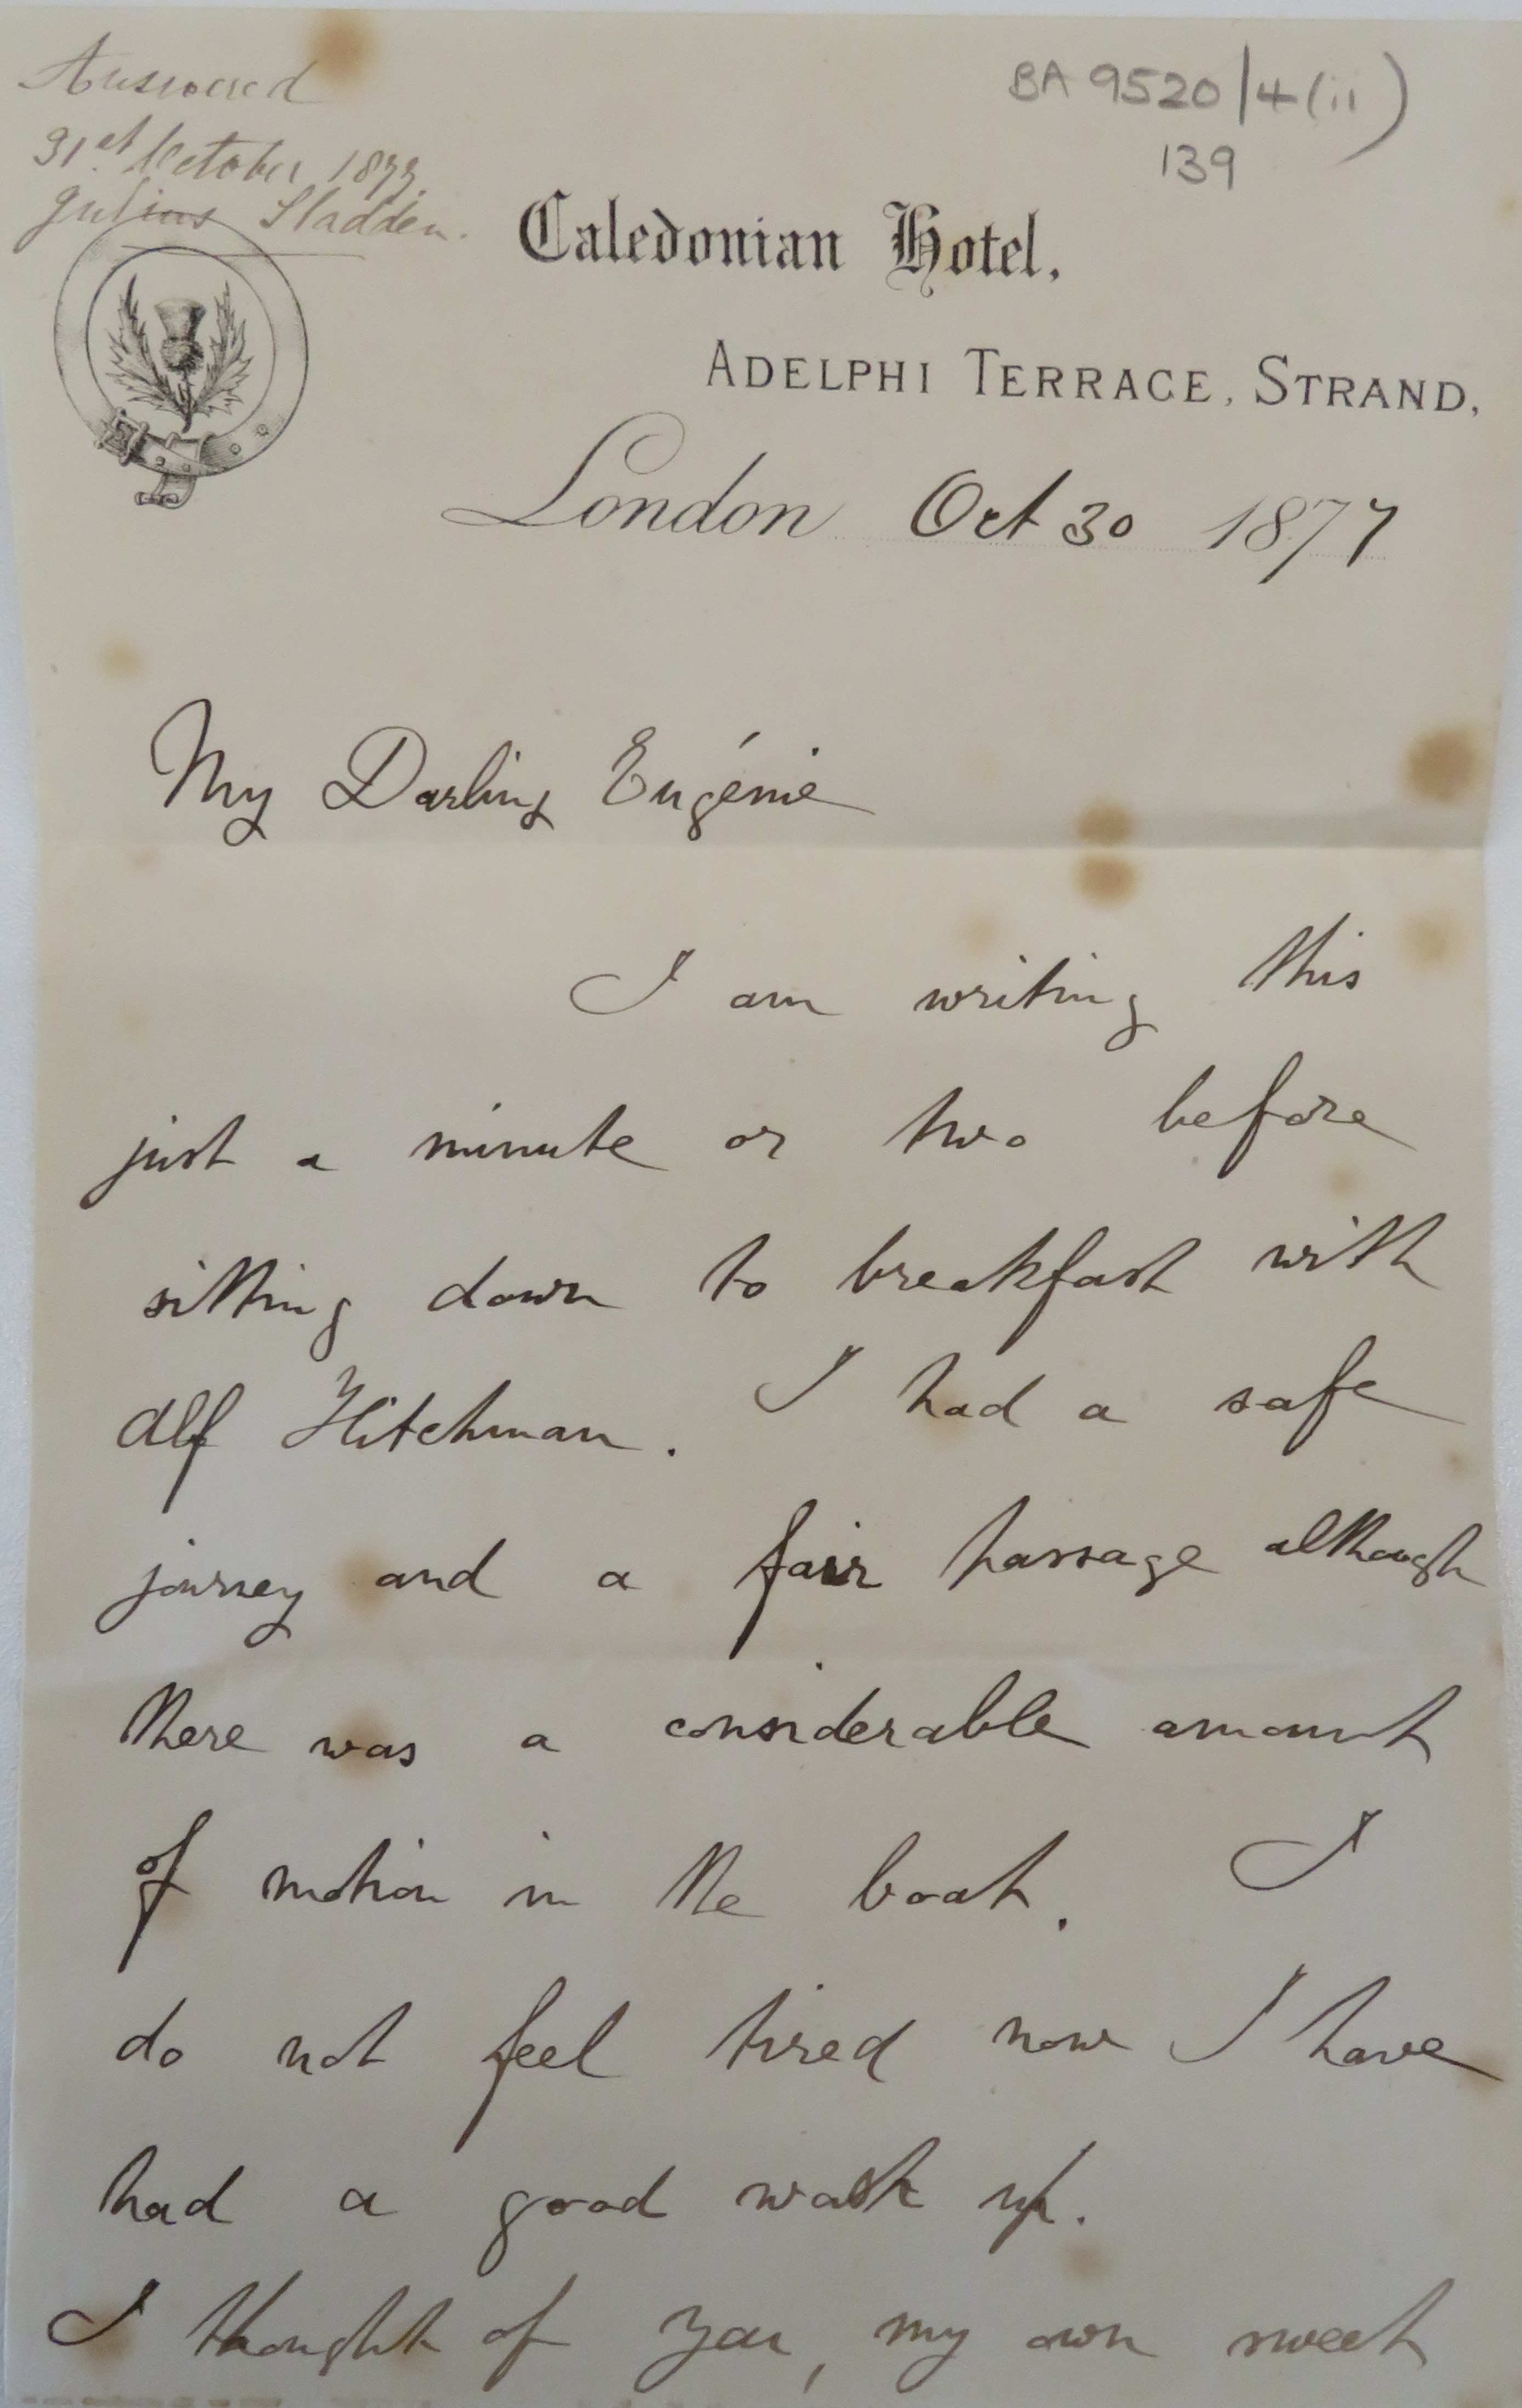 Answered
31st October 1877.
Julius Sladden.
BA 9520/4(ii)
139
Caledonian Hotel,
ADELPHI TERRACE, STRAND,
London Oct 30 1877
My Darling Eugénie
I am writing this
just a minute or two before
sitting down to breakfast with
Alf Hitchman. I had a safe
journey and a fair passage although
there was a considerable amount
of motion in the boat. I
do not feel tired now I have
had a good wash up.
I thought of you, my own sweet